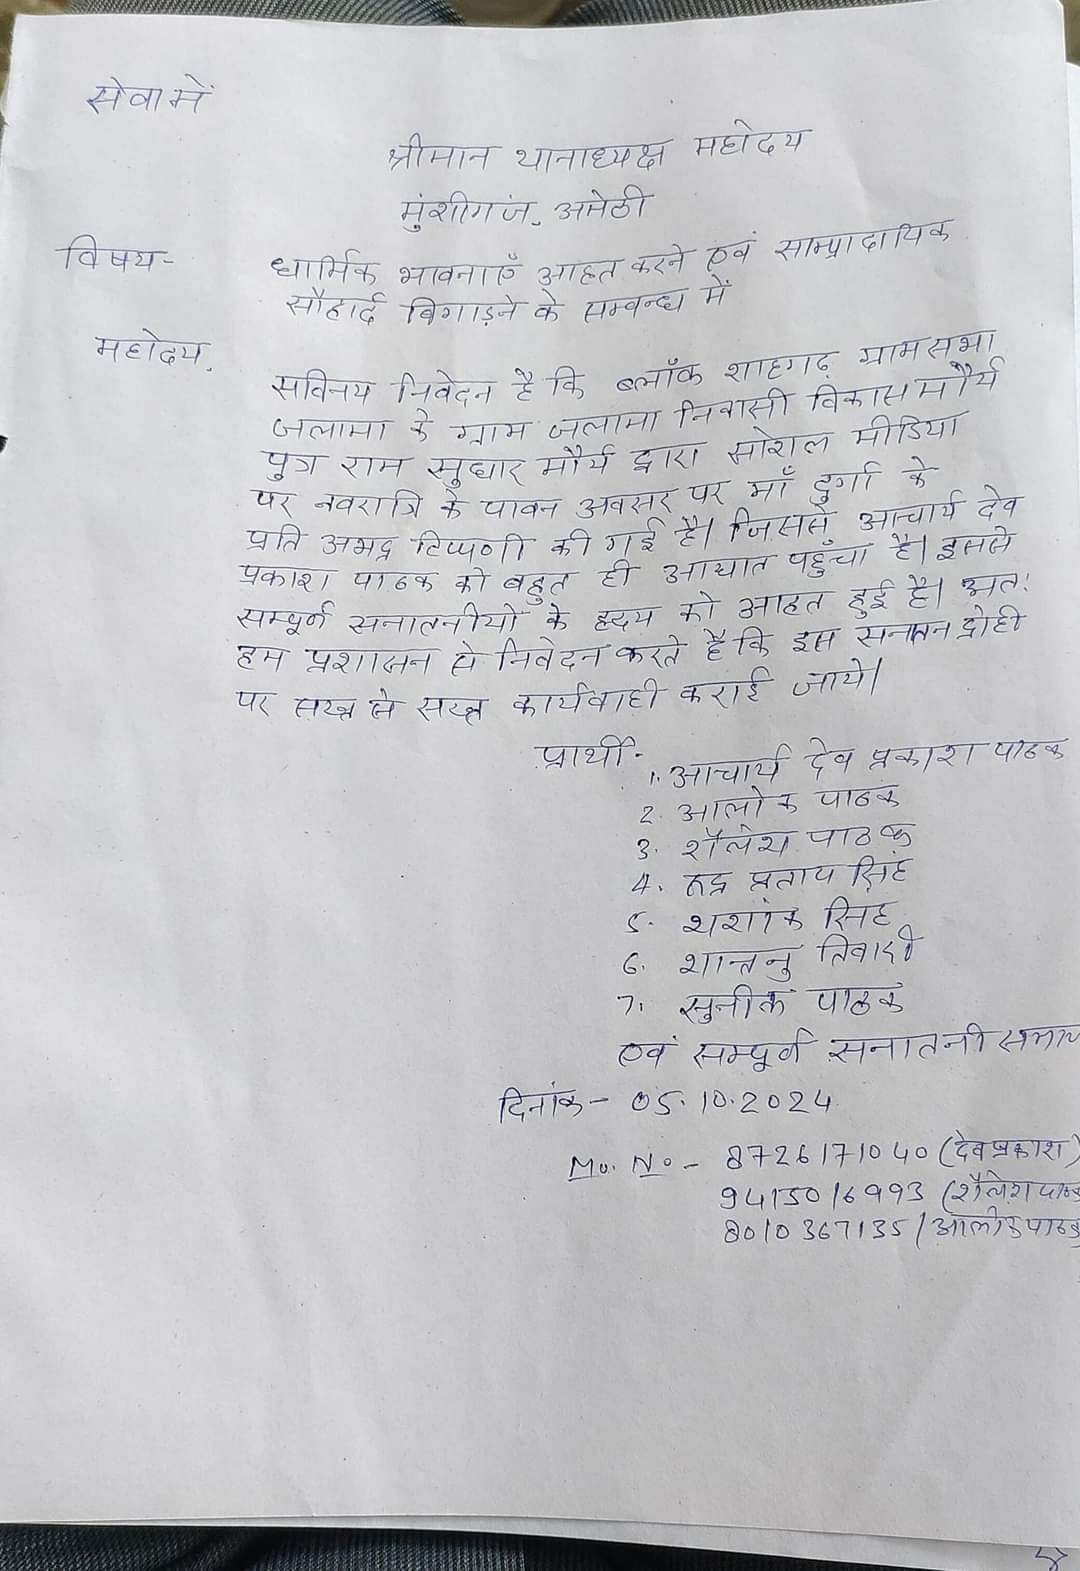 सेवा में
श्रीमान थानाध्यक्ष महोदय
मुंशीगंज, अमेठी
विषय- धार्मिक भावनाएँ आहत करने एवं साम्प्रादायिक
सौहार्द बिगाड़ने के सम्बन्ध में
महोदय,
सविनय निवेदन है कि ब्लॉक शाहगढ़ ग्रामसभा
जलामा के ग्राम जलामा निवासी विकास मौर्य
पुत्र राम सुधार मौर्य द्वारा सोशल मीडिया
पर नवरात्रि के पावन अवसर पर माँ दुर्गा के
प्रति अभद्र टिप्पणी की गई है। जिससे आचार्य देव
प्रकाश पाठक को बहुत ही आघात पहुँचा है। इससे
सम्पूर्ण सनातनीयों के हृदय को आहत हुई है। अत:
हम प्रशासन से निवेदन करते है कि इस सनातन द्रोही
पर सख्त से सख्त कार्यवाही कराई जाये।
प्रार्थी-
1. आचार्य देव प्रकाश पाठक
2. आलोक पाठक
3. शैलेश पाठक
4. रूद्र प्रताप सिंह
5. शशांक सिंह
6. शान्तनु तिवारी
7. पाठक
एवं सम्पूर्ण सनातनी समाज
दिनांक- 05.10.2024
Mo. No- 8726171040 (देवप्रकाश)
9415016993 (शैलेश पाठक
8010367135 (आलोक पाठक